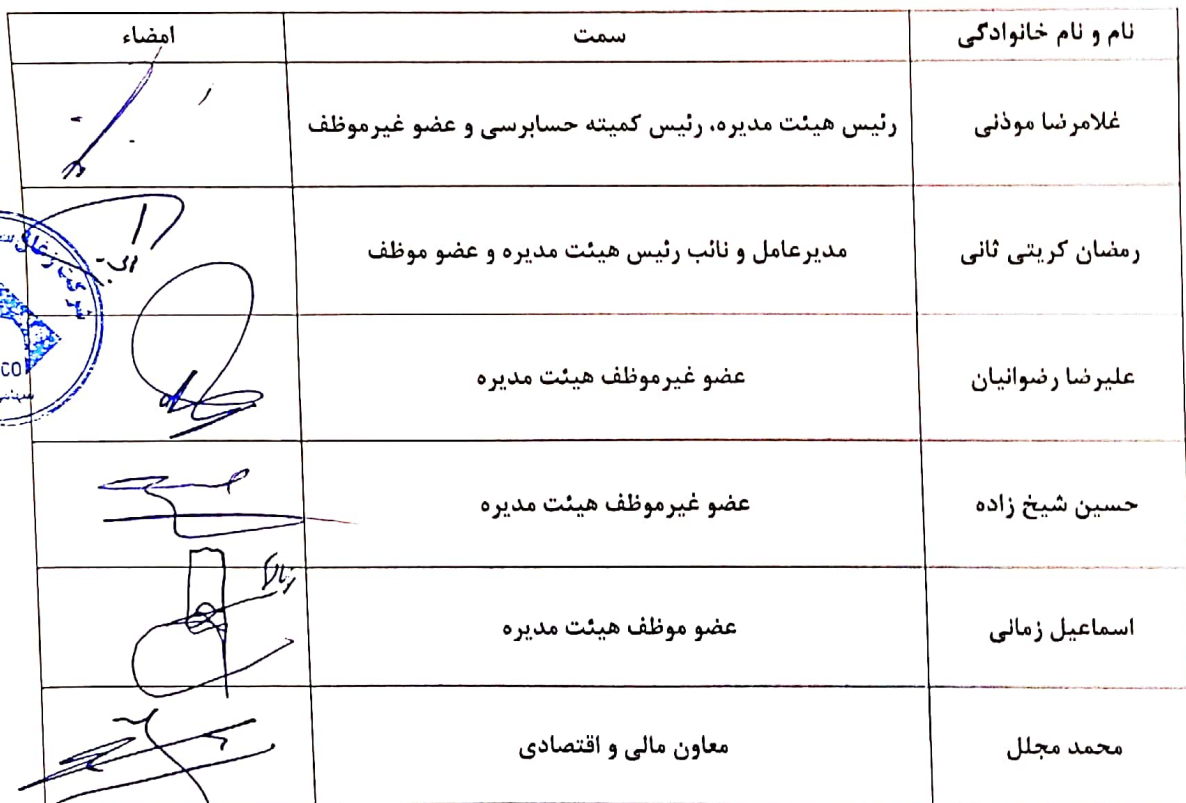 نام و نام خانوادگی سمت امضاء
غلامرضا موذنی رئیس هیئت مدیره، رئیس کمیته حسابرسی و عضو غیرموظف
رمضان کریتی ثانی مدیرعامل و نائب رئیس هیئت مدیره و عضو موظف
علیرضا رضوانیان عضو غیرموظف هیئت مدیره
حسین شیخ زاده عضو غیرموظف هیئت مدیره
اسماعیل زمانی عضو موظف هیئت مدیره
محمد مجلل معاون مالی و اقتصادی
شرکت
CO